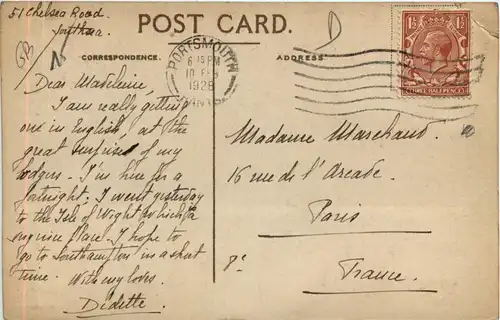 51 Chelsea Road
Southsea.
POST CARD.
CORRESPONDENCE.
ADDRESS
PORTSMOUTH
6 15 PM
10
1928
HANTS.
THREE HALFPENCE
GB
D
Dear Madeleine,
I am really getting
on in English, at the
great surprise of my
lodgers. I'm here for a
fortnight. I went yesterday
to the Isle of Wight which is a
exquise place. I hope to
go to Southampton in a short
time. With my loves.
Didette.
Madame Marchand.
16 rue de l'Arcade.
Paris
8e
France.